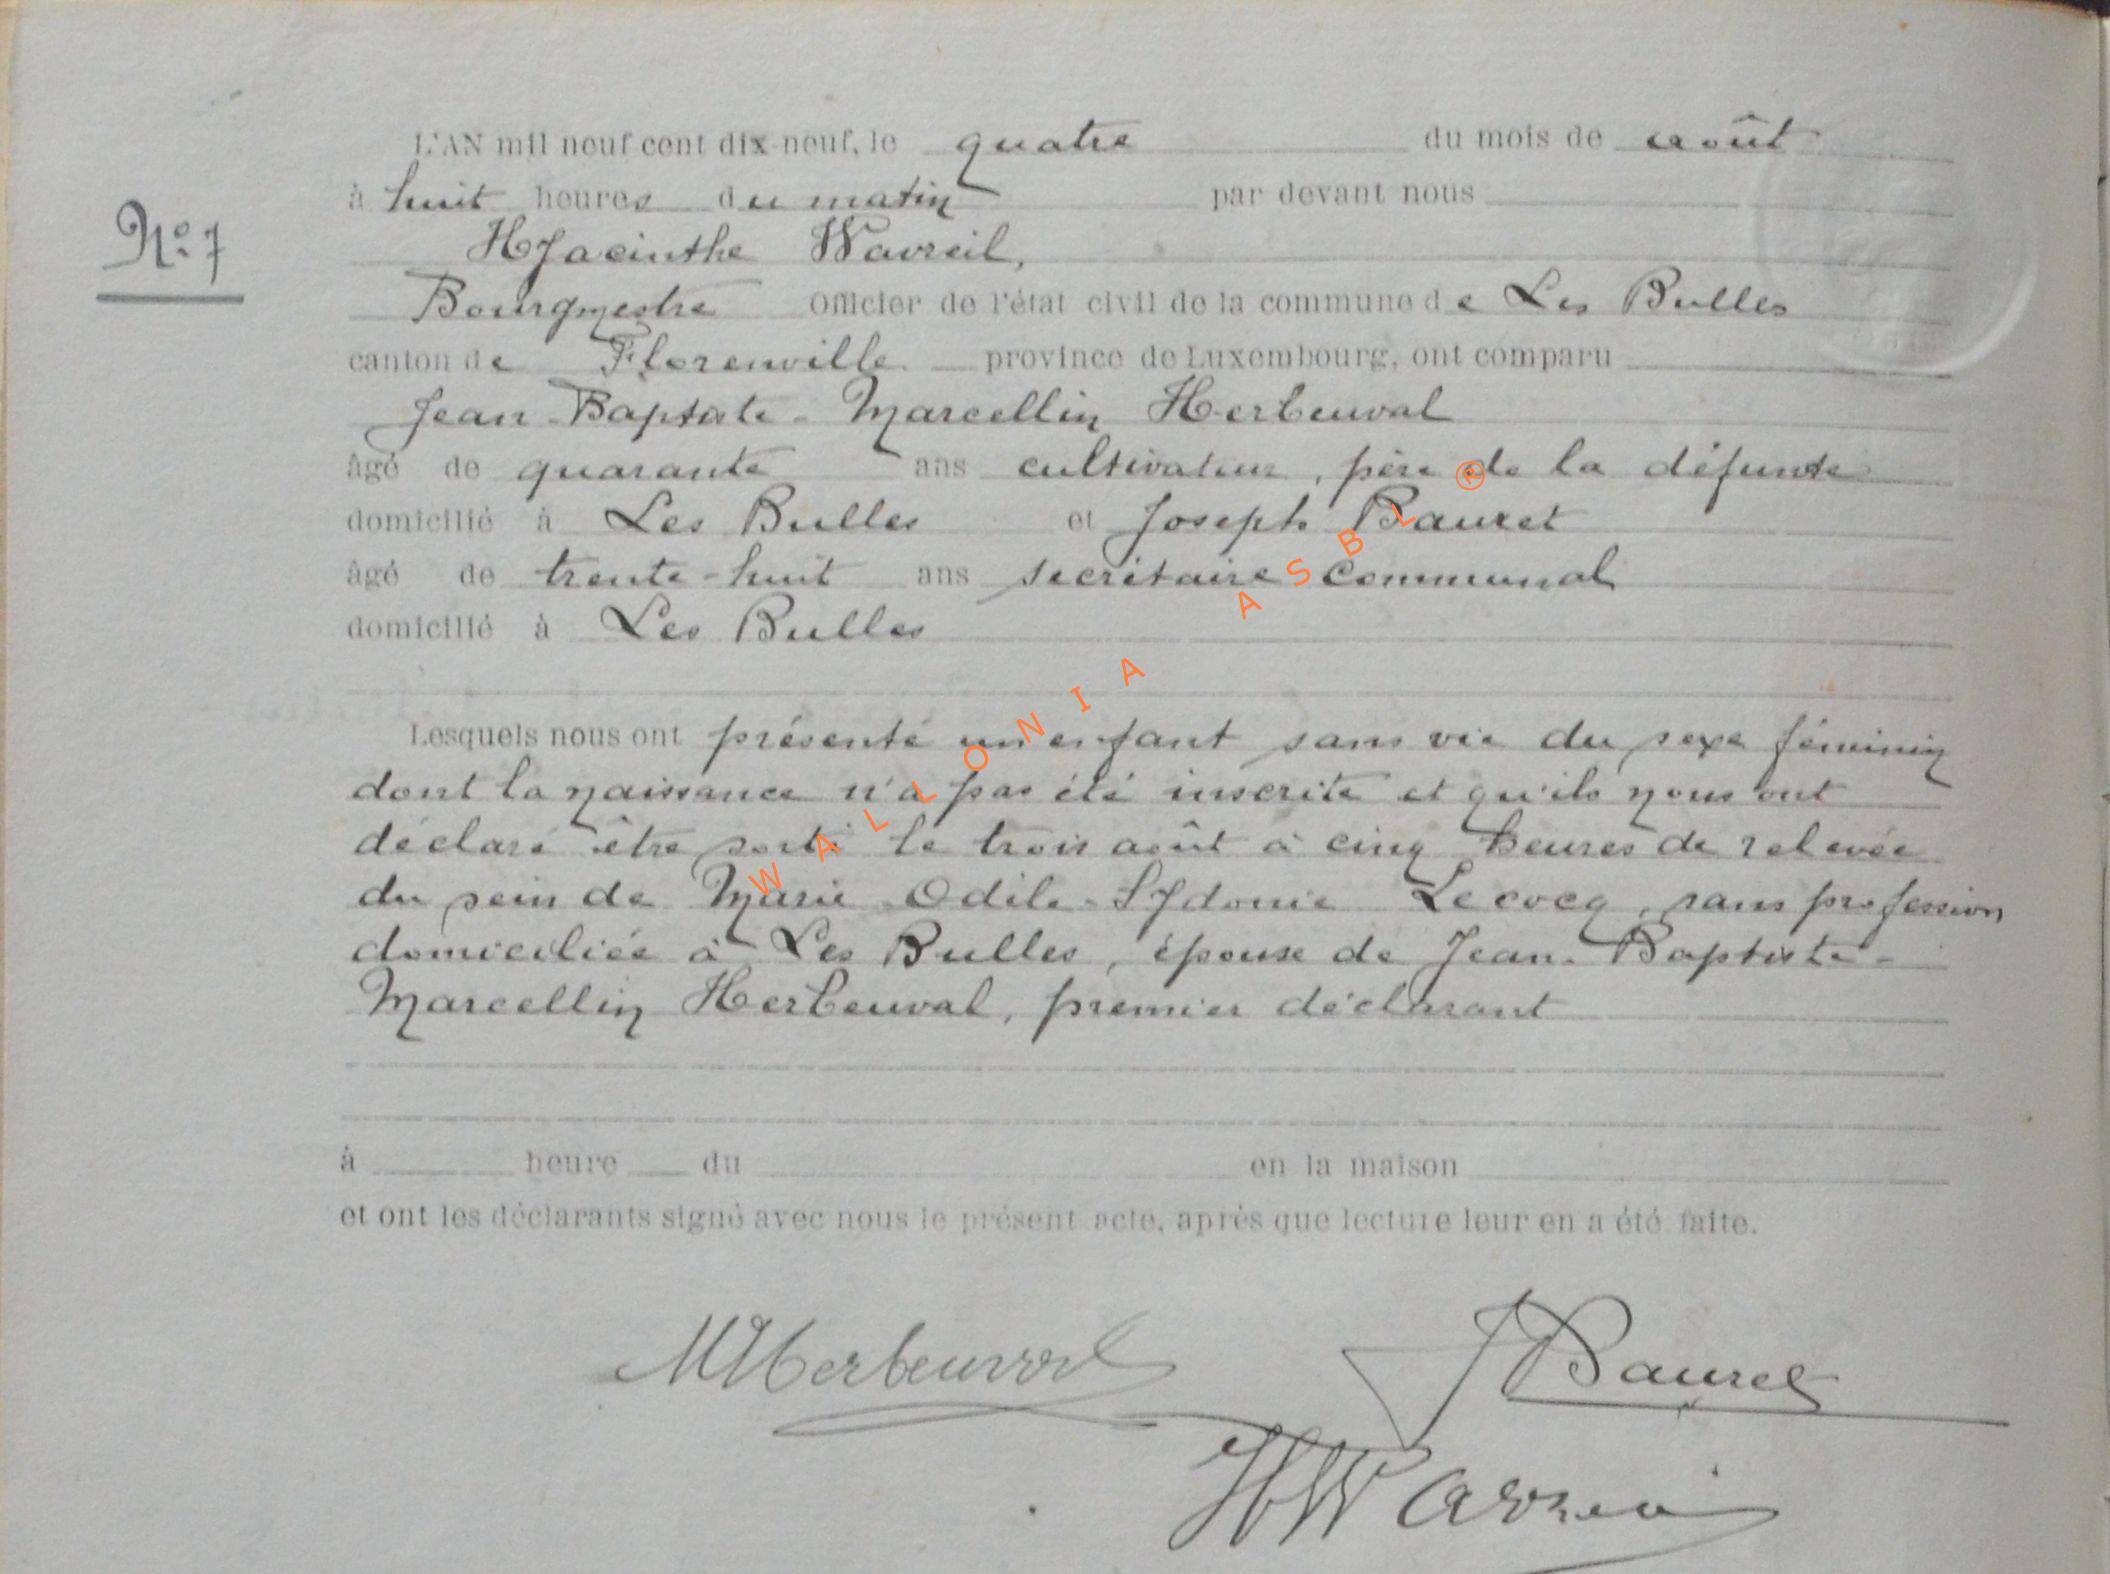 L'AN mil neuf cent dix-neuf, le quatre du mois de août
à huit heures du matin par devant nous
N° 7
HJacinthe Wavreil,
Bourgmestre Officier de l'état civil de la commune de Les Bulles
canton de Florenville province de Luxembourg, ont comparu
Jean-Baptiste-Marcellin Herbeuval
âgé de quarante ans cultivateur, père de la défunte
domicilié à Les Bulles et Joseph Bauret
âgé de trente-huit ans secrétaire communal
domicilié à Les Bulles
Lesquels nous ont présenté un enfant sans vie du sexe féminin
dont la naissance n'a pas été inscrite et qu'ils nous ont
déclaré être sorti le trois août à cinq heures de relevée
du sein de Marie-Odile-Sydonie Lecocq, sans profession
domiciliée à Les Bulles, épouse de Jean-Baptiste-
Marcellin Herbeuval, premier déclarant
à heure du en la maison
et ont les déclarants signé avec nous le présent acte, après que lecture leur en a été faite.
MHerbeuval JBauret
HWavreil
WALLONIA ASBL ®